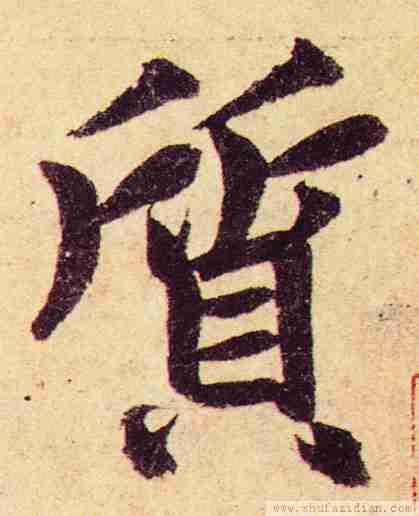 質
www.shufazidian.com